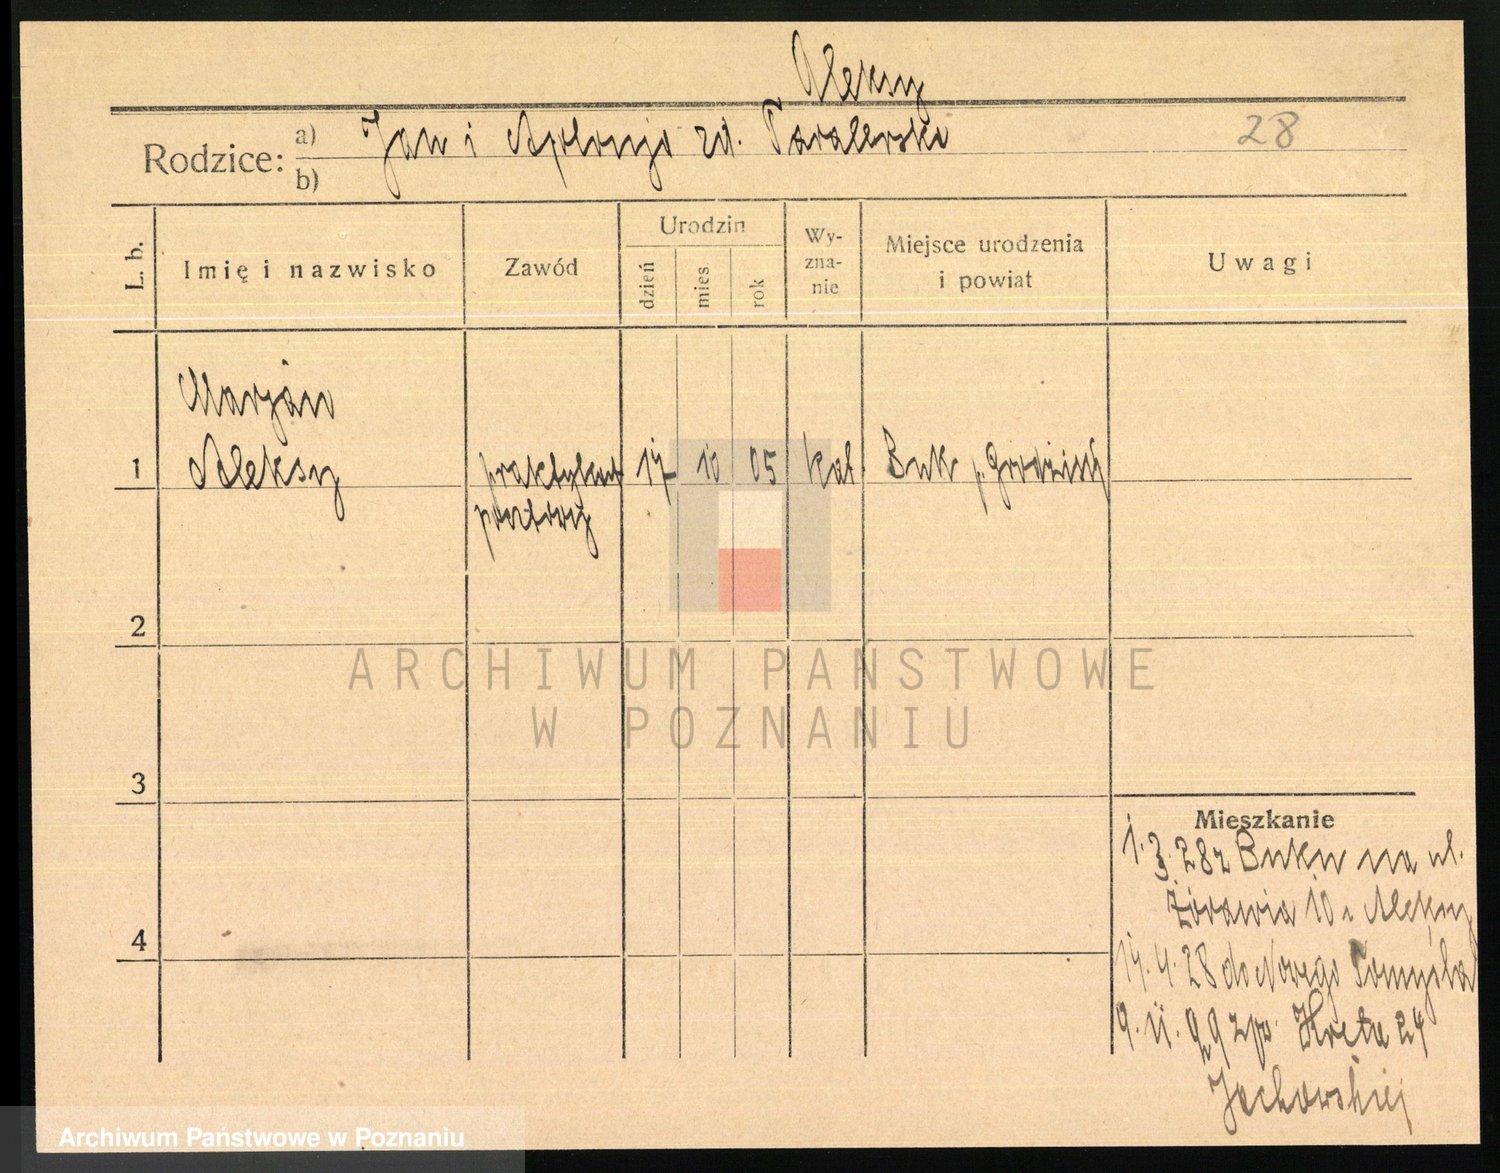 Aleksy
Rodzice: a) Jan i Apolonja zd.
b)
28
L. b.
Imię i nazwisko
Zawód
Urodzin
dzień
mies
rok
Wy-
zna-
nie
Miejsce urodzenia
i powiat
Uwagi
Marjan
1 Aleksy praktykant 17 10 05 kat. Buk p. Grodzisk
pocztowy
2
ARCHIWUM PAŃSTWOWE
W POZNANIU
3
Mieszkanie
1. 3. 28 z Buku na ul.
Żórawia 10 Aleksy
4
17. 4. 28 do Nowego Tomyśla
9. 11. 29 zpo. Kręta 24
Archiwum Państwowe w Poznaniu